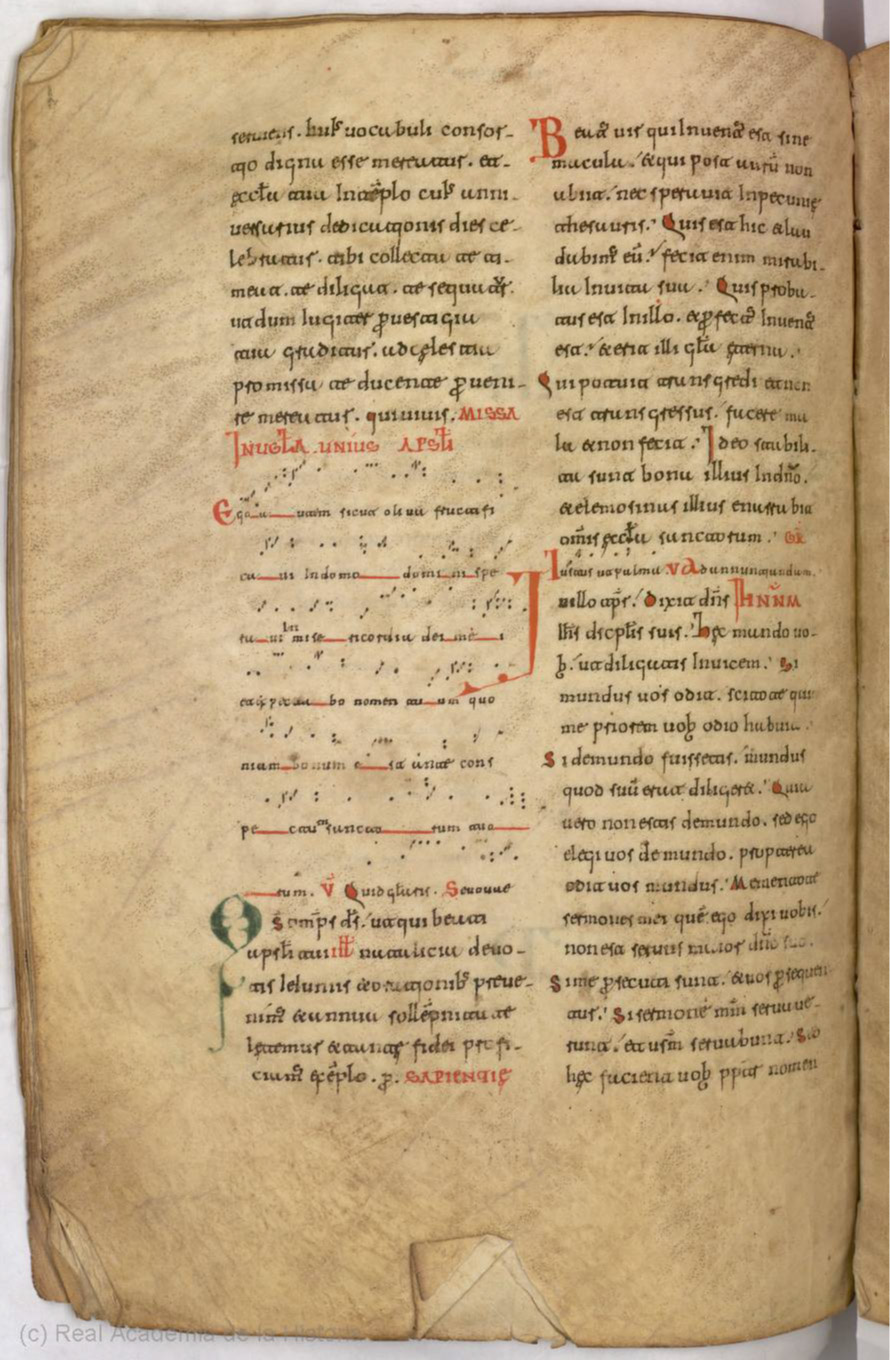 seruiens. huis uocabuli consor-
tio digna esse mereatur. et
eccla tua In teplo cuis anni
uersarius dedicationis dies ce-
lebratur. tibi collecta te ti-
meat. te diligat. te sequatr.
ut dum iugiter puestigia
tua graditur. ad celestia
promissa te ducente pueni-
re mereatur. qui uiuis. MISSA
IN UGLA UNIUS APSTLI
Ego autem sicut oliua fructifi
caui In domo domini spe
raui In misericordia dei mei
et expectabo nomen tuum quo
niam bonum cons
pectu sanctorum tuo
rum. V Quid glaris. Seuouae
Qs omps ds. ut qui beati
apstli tui ill natalicia deuo-
tis Ieiuniis & orationib; preue-
nim & annua sollepnitate
letemur & tante fidei profi-
ciam exeplo. p. SAPIENTIE
Beat uir qui Inuent est sine
macula. & qui post auru non
abiit. nec sperauit In pecunie
thesauris. Quis est hic & lau
dabim eu. fecit enim mirabi-
lia In uita sua. Quis proba-
tus est In illo. & pfect Inuent
est. & erit illi gla eterna.
Qui potuit transgredi et non
est transgressus. facere ma
la & non fecit. Ideo stabili-
ta sunt bona illius In dno.
& elemosinas illius enarrabit
omis eccla sanctorum. GR
Iustus ut palma VA dum nunquandum
In illo tps. Dixit dns IHNNM
Ihs discplis suis. Hec mando uo-
b. ut diligatis Inuicem. Si
mundus uos odit. scitote qui
me priorem uob odio habuit.
Si de mundo fuissetis. mundus
quod suu erat diliger&. Quia
uero non estis de mundo. sed ego
elegi uos de mundo. propterea
odit uos mundus. Mementote
sermones mei que ego dixi uobis.
non est seruus maior dno suo.
Si me psecuti sunt. & uos psequen
tur. Si sermone mm seruaue-
runt. et usm seruabunt. Sed
hec facient uob ppter nomen